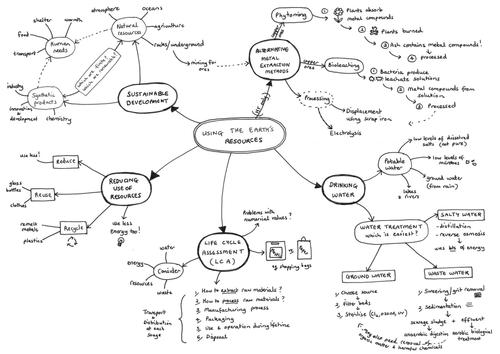 USING THE EARTH'S
RESOURCES
SUSTAINABLE
DEVELOPMENT
Natural
resources
atmosphere
oceans
agriculture
rocks/underground
mining for
ores
Human
needs
shelter
warmth
food
transport
Synthetic
products
industry
innovation
& development
chemistry
ALTERNATIVE
METAL
EXTRACTION
METHODS
Phytomining
copper
ores
1 Plants absorb
metal compounds
2 Plants burned
3 Ash contains metal compounds!
4 processed
copper
ores
Bioleaching
1 Bacteria produce
leachate solutions
2 Metal compounds from
solution
3 Processed
Processing
Displacement
using scrap iron
Electrolysis
REDUCING
USE OF
RESOURCES
Reduce
use less!
Reuse
glass
bottles
clothes
Recycle
remelt
metals
plastics
use less
Energy too!
LIFE CYCLE
ASSESSMENT
(LCA)
Problems with
numerical values?
eg shopping bags
Consider
water
energy
resources
waste
Transport
&
distribution
at each
stage
1, How to extract raw materials?
2, How to process raw materials?
3, Manufacturing process
4, Packaging
5, Use & operation during lifetime
6, Disposal
DRINKING
WATER
Potable
water
low levels of dissolved
salts (not pure)
low levels of
microbes
ground water
(from rain)
lakes
& rivers
WATER TREATMENT
which is easiest?
SALTY WATER
- distillation
- reverse osmosis
uses lots of energy
GROUND WATER
1, Choose source
2, Filter beds
3, Sterilise (Cl₂, ozone, UV)
WASTE WATER
1, Screening/grit removal
2, Sedimentation
sewage sludge + effluent
anaerobic digestion
aerobic biological
treatment
May also need removal
organic matter & harmful chemicals